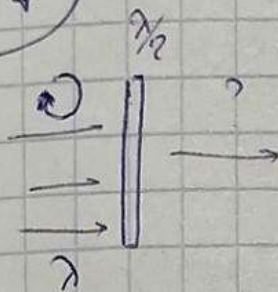 λ/2
?
λ